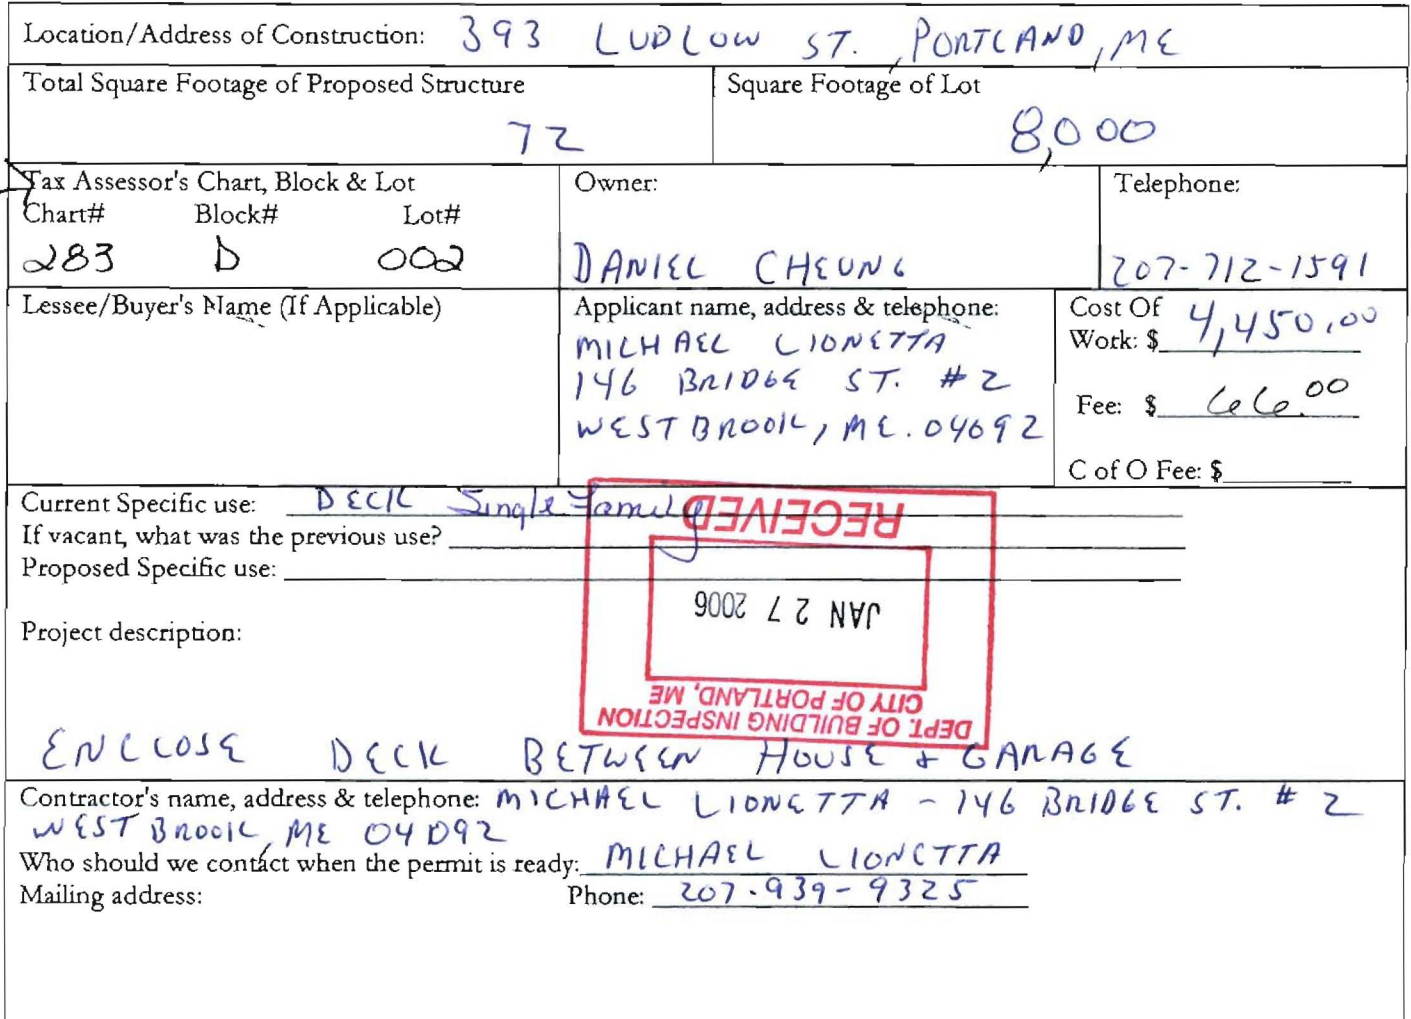 Location/Address of Construction: 393 LUDLOW ST., PORTLAND, ME
Total Square Footage of Proposed Structure
72
Square Footage of Lot
8,000
Tax Assessor's Chart, Block & Lot
Chart# Block# Lot#
283 D 002
Owner:
DANIEL CHEUNG
Telephone:
207-712-1591
Lessee/Buyer's Name (If Applicable)
Applicant name, address & telephone:
MICHAEL LIONETTA
146 BRIDGE ST. #2
WESTBROOK, ME. 04092
Cost Of
Work: $ 4,450.00
Fee: $ 66.00
C of O Fee: $
Current Specific use: DECK Single Family
If vacant, what was the previous use?
Proposed Specific use:
Project description:
ENCLOSE DECK BETWEEN HOUSE & GARAGE
DEPT. OF BUILDING INSPECTION
CITY OF PORTLAND, ME
JAN 27 2006
RECEIVED
Contractor's name, address & telephone: MICHAEL LIONETTA - 146 BRIDGE ST. #2
WESTBROOK, ME 04092
Who should we contact when the permit is ready: MICHAEL LIONETTA
Mailing address: Phone: 207-939-9325